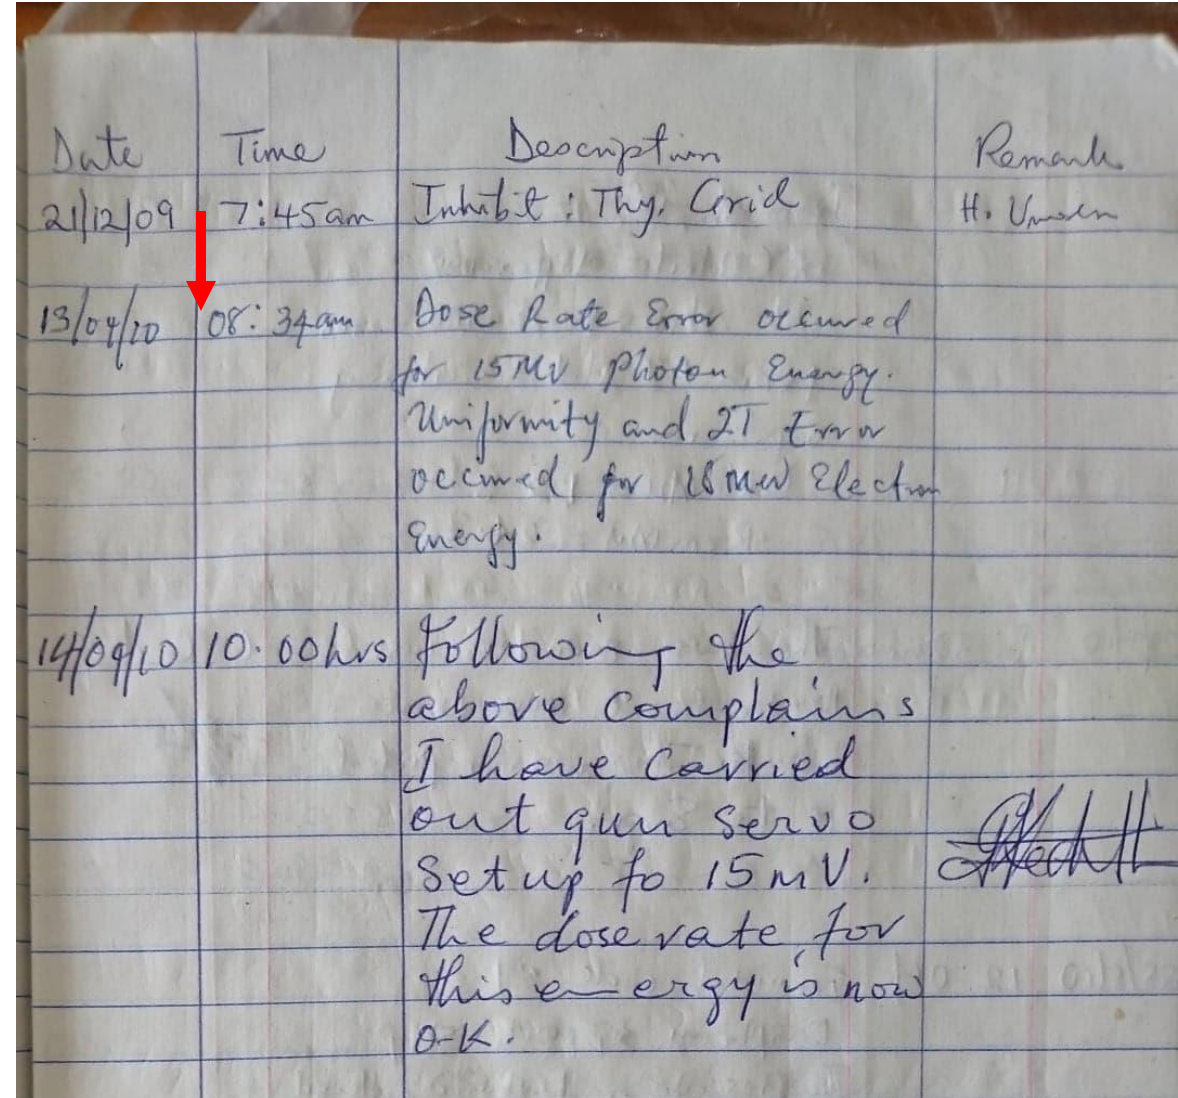 Date Time Description Remark
21/12/09 7:45am Inhibit : Thy. Grid H.
13/04/10 08:34am Dose Rate Error occured
for 15MV Photon Energy.
Uniformity and 2T Error
occured for 18 Mev Electron
Energy.
14/09/10 10.00hrs Following the
above Complains
I have Carried
out gun servo
Setup fo 15mV.
The dose rate for
this energy is now
O-K.